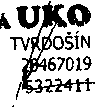 A UKO
TVRDOŠÍN
20467019
5322411